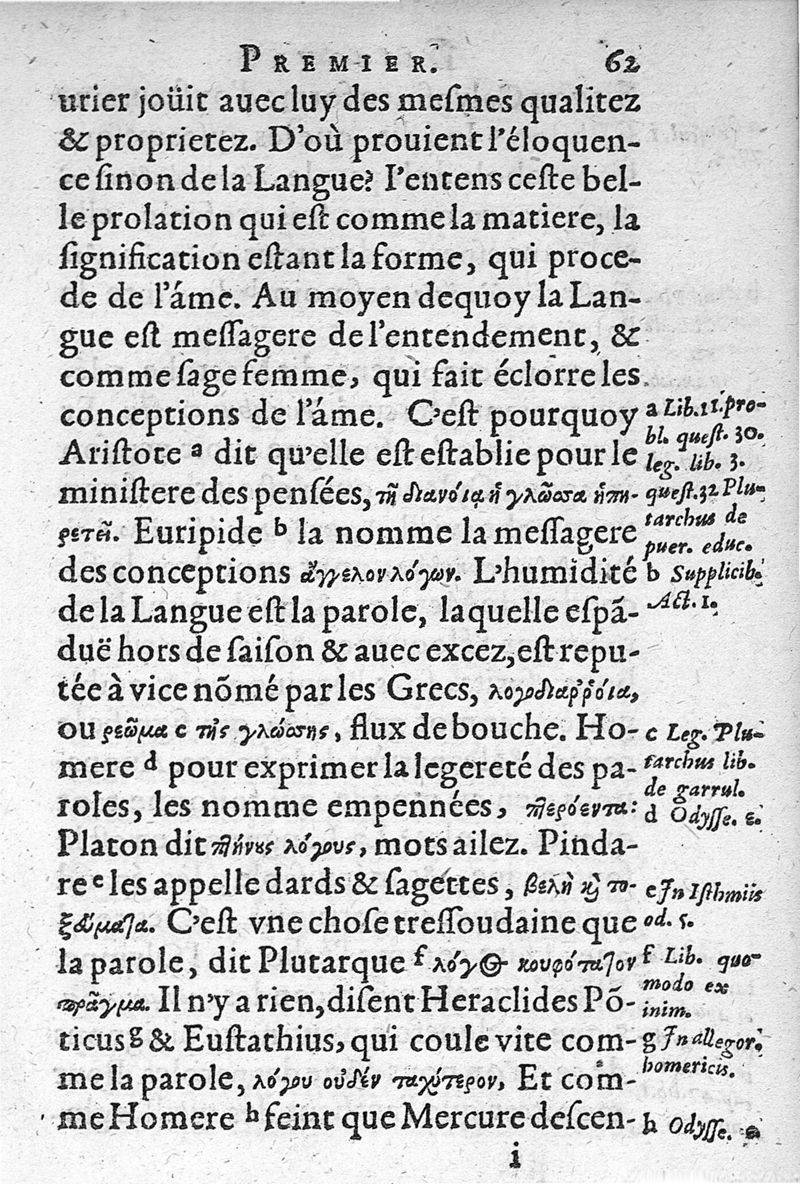 PREMIER. 62
urier joüit auec luy des meſmes qualitez
& proprietez. D'où prouient l'éloquen-
ce ſinon de la Langue? I'entens ceſte bel-
le prolation qui eſt comme la matiere, la
ſignification eſtant la forme, qui proce-
de de l'áme. Au moyen dequoy la Lan-
gue eſt meſſagere de l'entendement, &
comme ſage femme, qui fait éclorre les
conceptions de l'áme. C'eſt pourquoy
Ariſtote a dit qu'elle eſt eſtablie pour le
miniſtere des penſées, τῇ διανοίᾳ ἡ γλῶσσα ὑπη-
ρετεῖ. Euripide b la nomme la meſſagere
des conceptions ἄγγελον λόγων. L'humidité
de la Langue eſt la parole, laquelle eſpã-
duë hors de ſaiſon & auec excez, eſt repu-
tée à vice nõmé par les Grecs, λογοδιαῤῥοία,
ou ρεῶμα c τῆς γλώσσης, flux de bouche. Ho-
mere d pour exprimer la legereté des pa-
roles, les nomme empennées, πτερόεντα:
Platon dit πτήνους λόγους, mots ailez. Pinda-
re e les appelle dards & ſagettes, βελὴ καὶ το-
ξεύματα. C'eſt vne choſe treſſoudaine que
la parole, dit Plutarque f λόγος κουφότατον
πρᾶγμα. Il n'y a rien, diſent Heraclides Põ-
ticus g & Euſtathius, qui coule vite com-
me la parole, λόγου οὐδέν ταχύτερον, Et com-
me Homere h feint que Mercure deſcen-
i
a Lib. 11. pro-
bl. queſt. 30.
leg. lib. 3.
queſt. 32 Plu-
tarchus de
puer. educ.
b Supplicib.
Act. 1.
c Leg. Plu-
tarchus lib.
de garrul.
d Odyſſe. ε.
e In Iſthmiis
od. 5.
f Lib. quo-
modo ex
inim.
g In allegor.
homericis.
h Odyſſe.